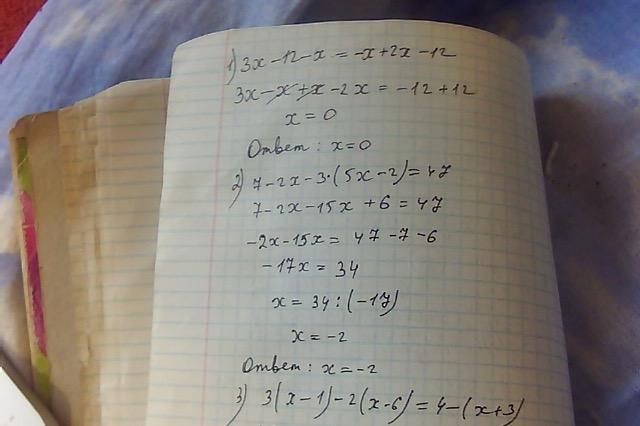 1) 3x-12-x = -x+2x-12
3x-x+x-2x = -12+12
x = 0
Ответ: x=0
2) 7-2x-3·(5x-2)=47
7-2x-15x+6=47
-2x-15x= 47-7-6
-17x = 34
x = 34:(-17)
x = -2
Ответ: x=-2
3) 3(x-1)-2(x-6)=4-(x+3)